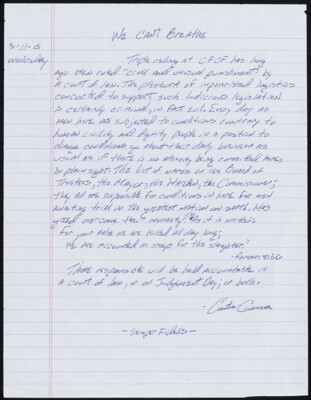 We Can't Breathe
3-11-15
Wednesday
Triple celling at CFCF has long
ago been ruled "cruel and unusual punishment" by
a court of law. The plethora of logistics
concocted to support such ludicrous legislation
is certainly criminal, in fact evil. Every day as
men here are subjected to conditions contrary to
human civility and dignity people in a position to
change conditions go about their daily business as
usual as if there is no atrocity being committed here,
in plain sight. The list of names on the Board of
Trustees, the Mayor, the Warden, the Commissioner;
they all are responsible for conditions in here for men
awaiting trial in the greatest nation on earth. Has
greed overcome their necessity? As it is written:
For your sake we are killed all day long;
We are accounted as sheep for the slaughter."
-Romans 8:36
Those responsible will be held accountable in
a court of law, or on Judgement Day, or both.
- Semper Fidelis -